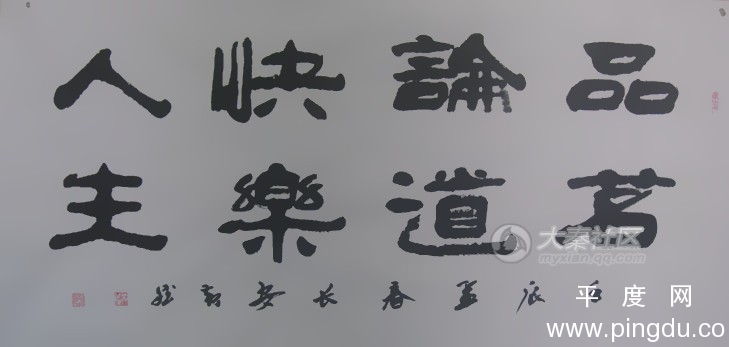 品茗
論道
快樂
人主
辰孟春长安
大秦社区
myxian.qq.com
平度网
www.pingdu.co